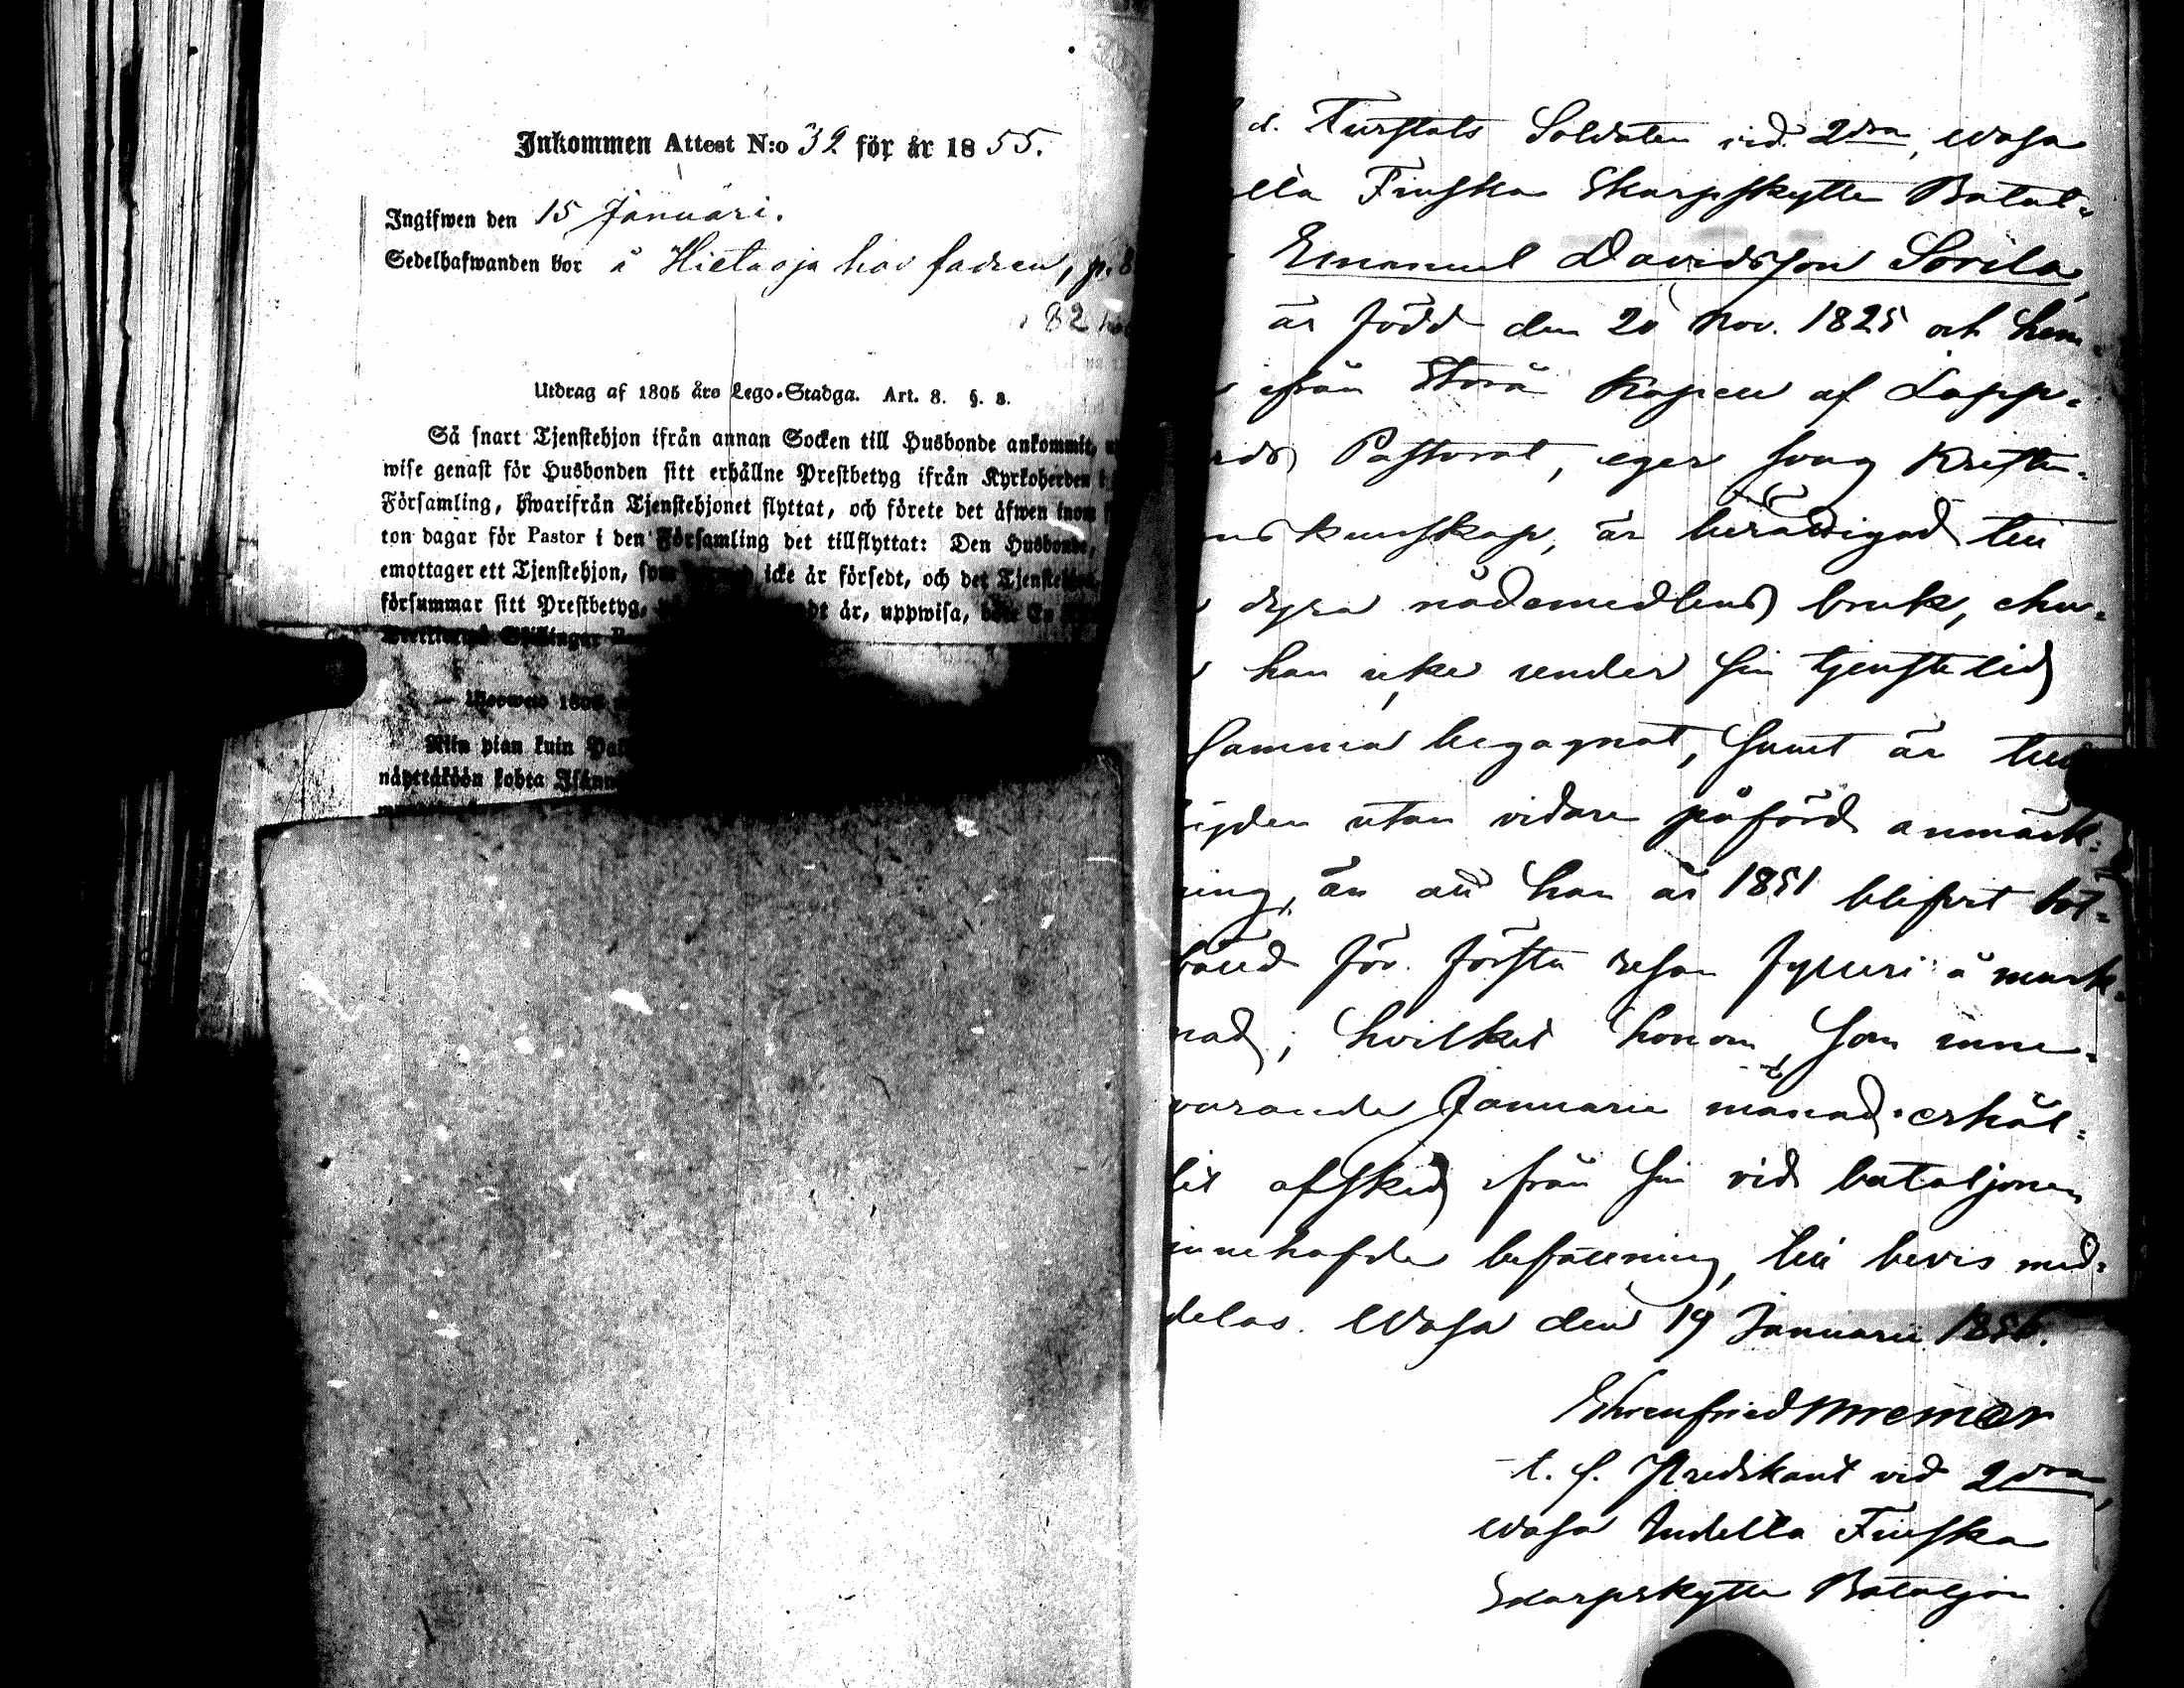 Inkommen Attest N:o 32 för år 1855.
Ingifwen den 15 Januari.
Sedelhafwanden bor å Hietaoja hos fadren, p. 8
82
Utdrag af 1805 års Lego-Stadga. Art. 8. §. 8.
Så snart Tjenstehjon ifrån annan Socken till Husbonde ankommit,
wise genast för Husbonden sitt erhållne Prestbetyg ifrån Kyrkoherden i
Församling, hwarifrån Tjenstehjonet flyttat, och förete det äfwen inom
ton dagar för Pastor i den Församling det tillflyttat: Den Husbonde,
emottager ett Tjenstehjon, som icke är försedt, och det Tjenstehjon,
försummar sitt Prestbetyg, är, uppwisa,
Niin pian kuin
näyttäköön kohta
d. Furstats Soldaten vid 2dra, Wasa
ella Finska Skarpskytte Batal=
Emanuel Davidsson Sorila,
är född den 20 Nov. 1825 och hem=
ifrån Storå Kapell af Lapp=
rds Pastorat, eger svag Kriste=
ns kunskap, är berättigad till
dyra nådemedlens bruk, ehu=
han icke under sin tjenstetid
samma begagnat, samt är till
igden utan vidare påförd anmärk=
ning, än att han år 1851 blifvit böt=
fälld för första resan fylleri å mark=
nad; hvilket honom, som inne=
varande Januarii månad erhål=
lit afsked ifrån sin vid bataljonen
innehafde befattning, till bevis med=
delas. Wasa den 19 Januarii 1856.
Ehrenfried
t. f. Predikant vid 2dra,
Wasa Indelta Finska
Skarpskytte Bataljon